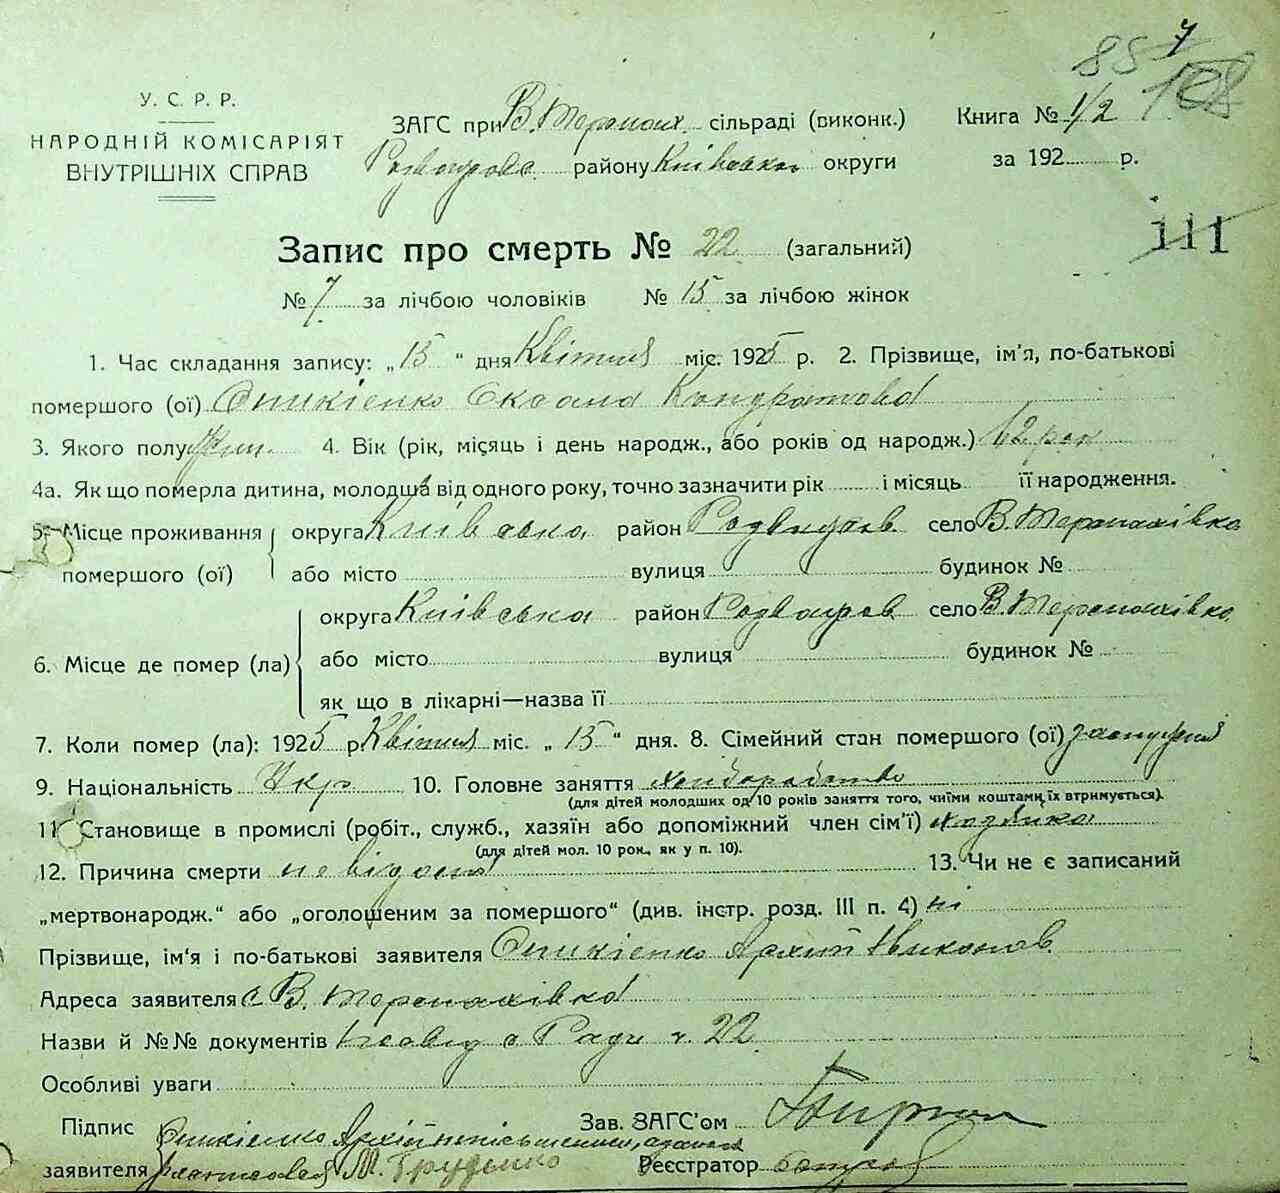 88 7
108
У. С. Р. Р.
НАРОДНІЙ КОМІСАРІЯТ
ВНУТРІШНІХ СПРАВ
ЗАГС при В. сільраді (виконк.)
району Київської округи
Книга № 1/2
за 192 р.
111
Запис про смерть № 22 (загальний)
№ 7 за лічбою чоловіків № 15 за лічбою жінок
1. Час складання запису: „ 15 “ дня Квітня міс. 1925 р. 2. Прізвище, ім'я, по-батькові
помершого (ої) Оникієнко Оксана Кондратова
3. Якого полу жін. 4. Вік (рік, місяць і день народж., або років од народж.) 62 рок
4а. Як що померла дитина, молодша від одного року, точно зазначити рік і місяць її народження.
5. Місце проживання округа Київська район село В.
помершого (ої) або місто вулиця будинок №
округа Київська район село В.
6. Місце де помер (ла) або місто вулиця будинок №
як що в лікарні—назва її
7. Коли помер (ла): 1925 р. Квітня міс. „ 15 “ дня. 8. Сімейний стан помершого (ої) замужня
9. Національність Укр. 10. Головне заняття хліборобство
(для дітей молодших од 10 років заняття того, чиїми коштами їх втримується).
11. Становище в промислі (робіт., служб., хазяїн або допоміжний член сім'ї) хазяйка
(для дітей мол. 10 рок., як у п. 10).
12. Причина смерти невідома 13. Чи не є записаний
„мертвонародж.“ або „оголошеним за помершого“ (див. інстр. розд. III п. 4) ні
Прізвище, ім'я і по-батькові заявителя Оникієнко Архип
Адреса заявителя с. В.
Назви й №№ документів Ради ч. 22
Особливі уваги
Підпис Оникієнко Архип Зав. ЗАГС'ом
заявителя М. Груденко Реєстратор